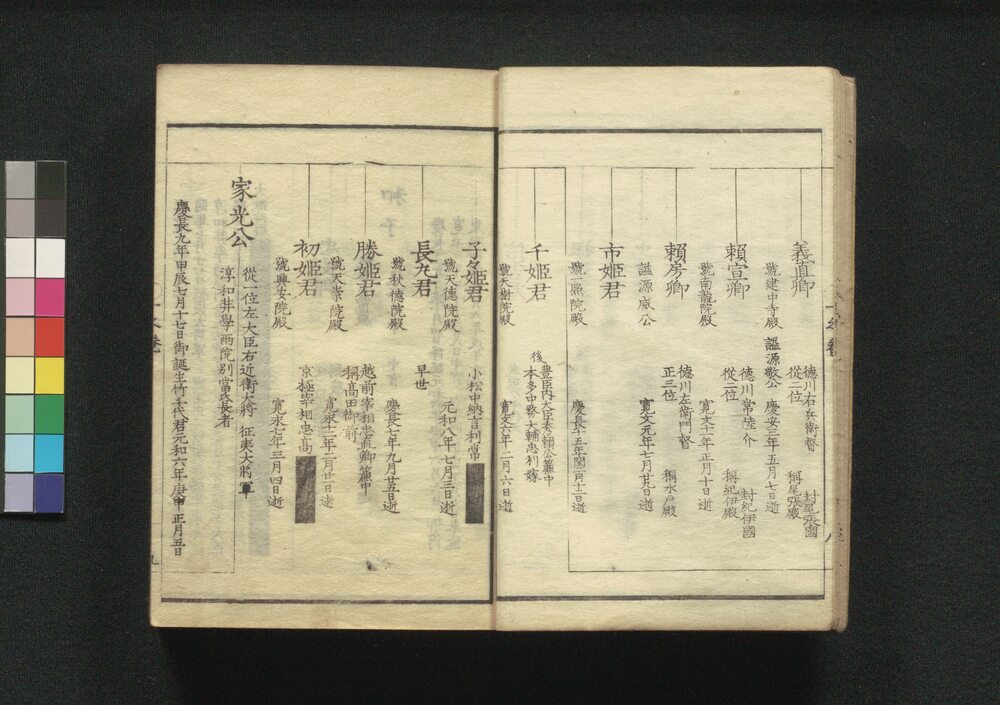 義直卿
德川右兵衛督
從二位
封尾張國
稱尾張殿
號建中寺殿 謚源敬公 慶安三年五月七日逝
賴宣卿
德川常陸介
從二位
封紀伊國
稱紀伊殿
號南龍院殿 寬文十一年正月十日逝
賴房卿
德川左衛門督
正三位
稱水戶殿
謚源威公 寬文元年七月廿九日逝
市姬君
號照院殿 慶長十五年閏二月十二日逝
千姬君
豐臣内大臣秀賴公簾中
後本多中務大輔忠刻嫁
號天樹院殿 寬文六年二月六日逝
八
子々姬君 小松中納言利常
號天德院殿 元和八年七月三日逝
長丸君 早世
號秋德院殿 慶長七年九月廿五日逝
勝姬君
越前宰相忠直卿簾中
稱高田御前
號天崇院殿 寬永十二年二月廿一日逝
初姬君 京極宰相忠高
號興安院殿 寬永七年三月四日逝
家光公
從一位左大臣右近衛大將 征夷大將軍
淳和奘學兩院别當氏長者
慶長九年甲辰七月十七日御誕生竹千代君元和六年庚申正月五日
九